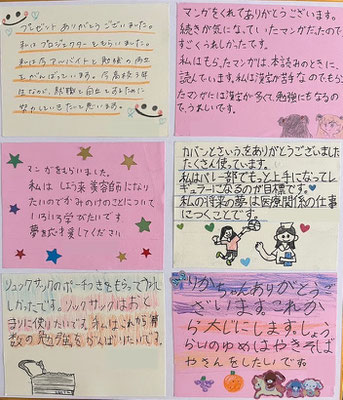 プレゼント ありがとうございました。
私は プロジェクターをもらいました。
私は今アルバイトと勉強の両立
をがんばっています。今高校3年
生なので、就職と自立するために
努力していきたいと思います。
マンガをくれてありがとうございます。
続きが気になっていたマンガだたので
すごくうれしかったです。
私はもらたマンガは、本読みのときに、
読んでいます。私は漢字が苦手なのでもら
たマンガには漢字が多くて、勉強にもなるの
で、うれしいです。
マンガをもらいました。
私は しょう来 美容師になり
たいのでかみのけのことについて
いろいろ学びたいです
夢を応えん愛してください
カバンとさいふをありがとうございました
たくさん使っています。
私はバレー部でもっと上手になってレ
ギュラーになるのが目標です。
私の将来の夢は医療関係の仕事
につくことです。
リュックサックのポーキつきをもらってうれ
しかったです。リックサックはおと
まりに使いたいです。オレはこれから算
数の勉強をがんばりたいです。
りかちゃんありがとうご
ざいます。これか
ら大じにします。しょう
らいのゆめはやきそば
やさんをしたいです。